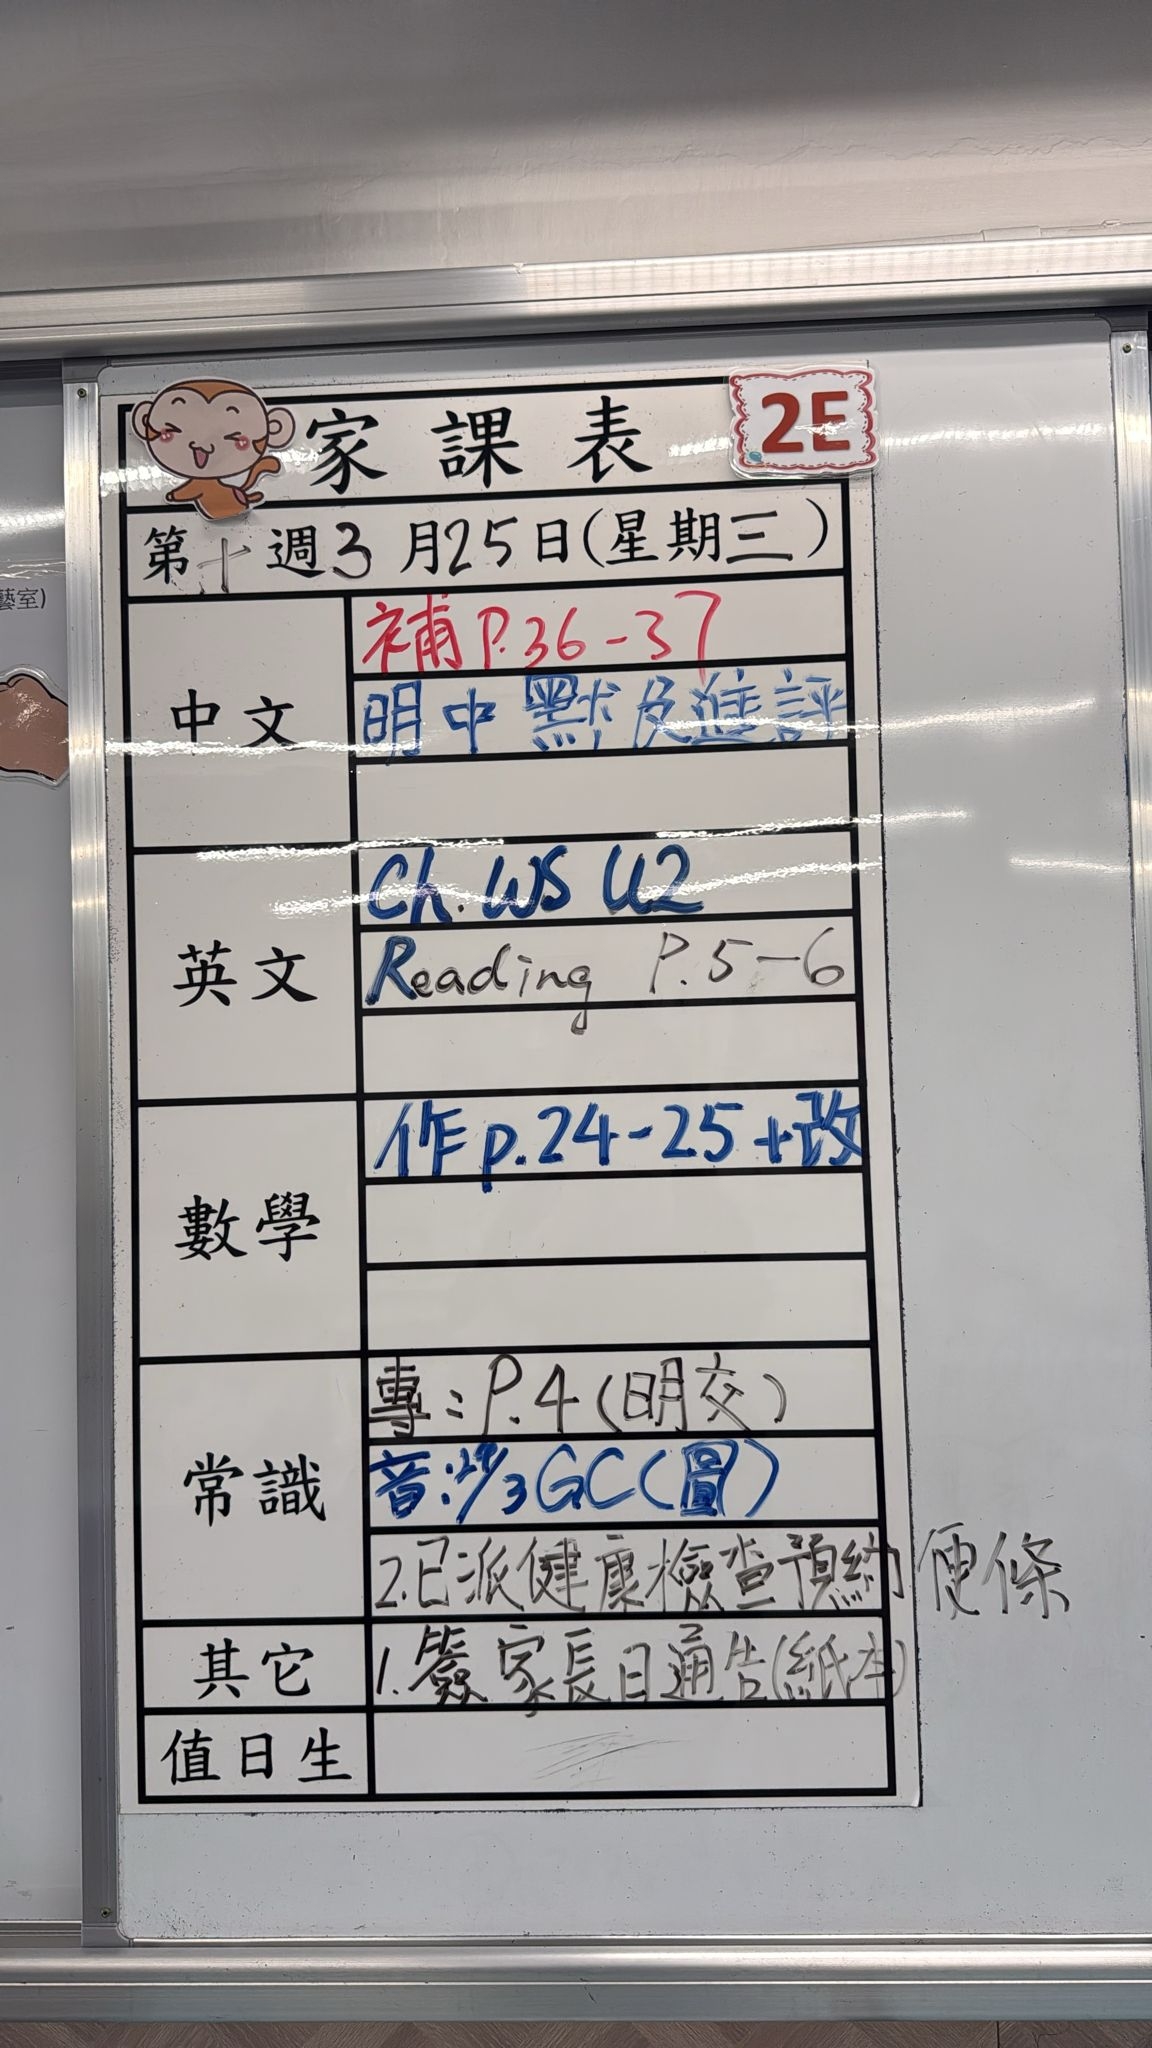 藝室)
家課表 2E
第十週3月25日(星期三)
中文
補P.36-37
明中默及進評
英文
Ch. WS U2
Reading P.5-6
數學
作p.24-25+改
常識
專:P.4(明交)
音:/3GC(圖)
2.已派健康檢查預約便條
其它
1.簽家長日通告(紙本)
值日生